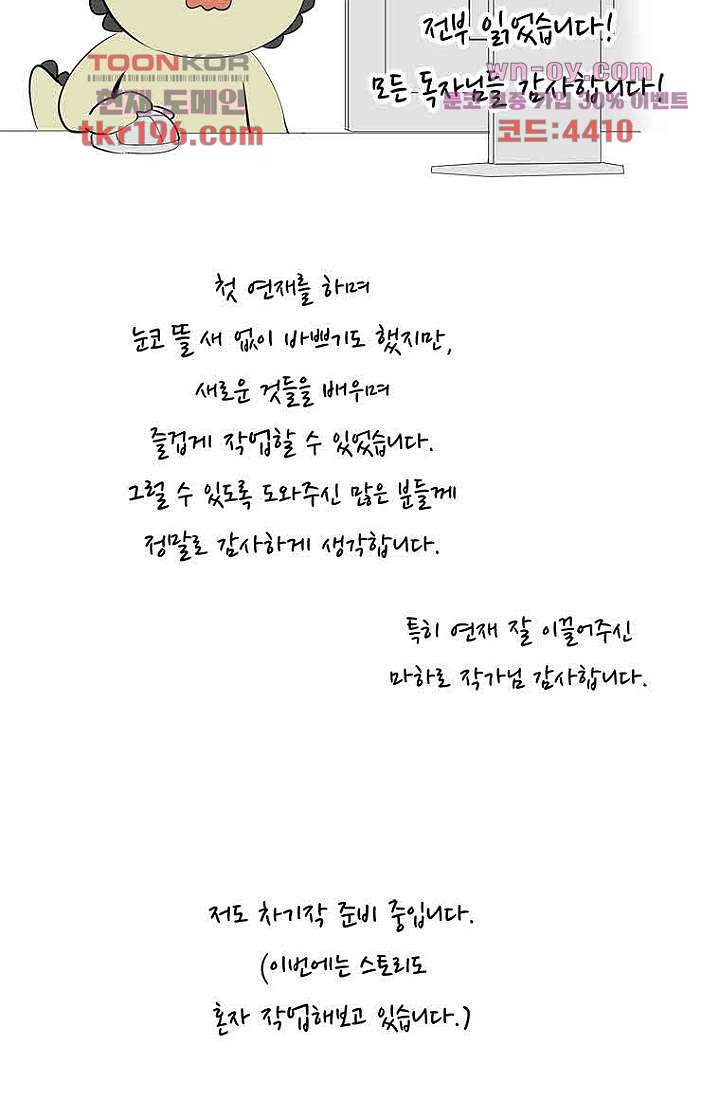 전부 읽었습니다!
모든 독자님들 감사합니다!
TOONKOR
현재 도메인
tkr196.com
wn-oy.com
30% 이벤트
코드:4410
첫 연재를 하며
눈코 뜰 새 없이 바쁘기도 했지만,
새로운 것들을 배우며
즐겁게 작업할 수 있었습니다.
그럴 수 있도록 도와주신 많은 분들께
정말로 감사하게 생각합니다.
특히 연재 잘 이끌어주신
마하로 작가님 감사합니다.
저도 차기작 준비 중입니다.
(이번에는 스토리도
혼자 작업해보고 있습니다.)